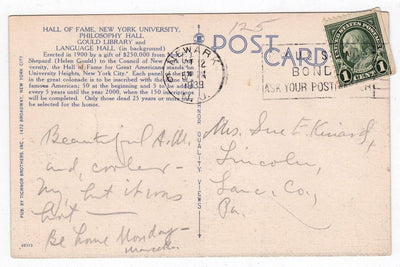 HALL OF FAME, NEW YORK UNIVERSITY,
PHILOSOPHY HALL,
GOULD LIBRARY and
LANGUAGE HALL (in background)
Erected in 1900 by a gift of $250,000 from Mrs.
Shepard (Helen Gould) to the Council of New York
University, the Hall of Fame for Great Americans stands on
University Heights, New York City. Each panel
in the great colonnade is to be inscribed with the
famous American; 50 at the beginning and 5 to be added
every 5 years until the year 2000, when the 150 inscriptions
will be completed. Only those dead 25 years or more
selected for the honor.
125
POST
CARD
NEWARK
1939
N.J.
BOND
ASK YOUR POST
1 CENT 1
PUB. BY TICHNOR BROTHERS, INC., 1472 BROADWAY, NEW YORK CITY
QUALITY VIEWS
Beautiful A.M.
and, cooler-
My, but it was
hot-
Be home Monday-
Mrs. Sue E. Kinard,
Lincoln,
Lanc. Co.,
Pa.